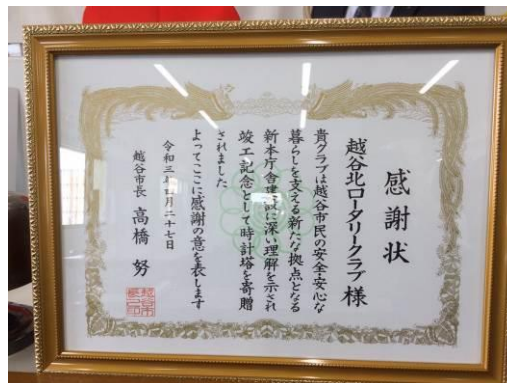 感謝状
越谷北ロータリークラブ 様
貴クラブは越谷市民の安全・安心な
暮らしを支える新たな拠点となる
新本庁舎建設に深い理解を示され
竣工記念として時計塔を寄贈
されました
よってここに感謝の意を表します
令和三年 月二十七日
越谷市長 高橋 努